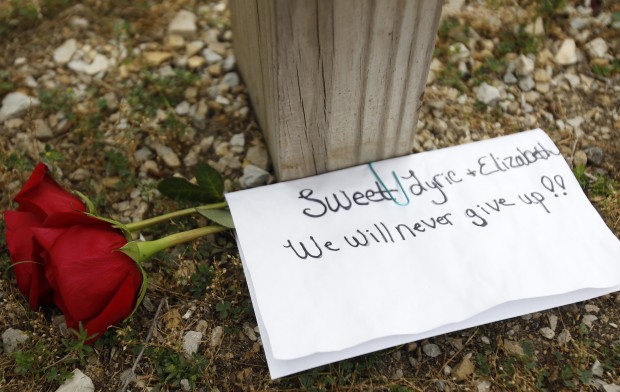 Sweet Lyric + Elizabeth
We will never give up!!